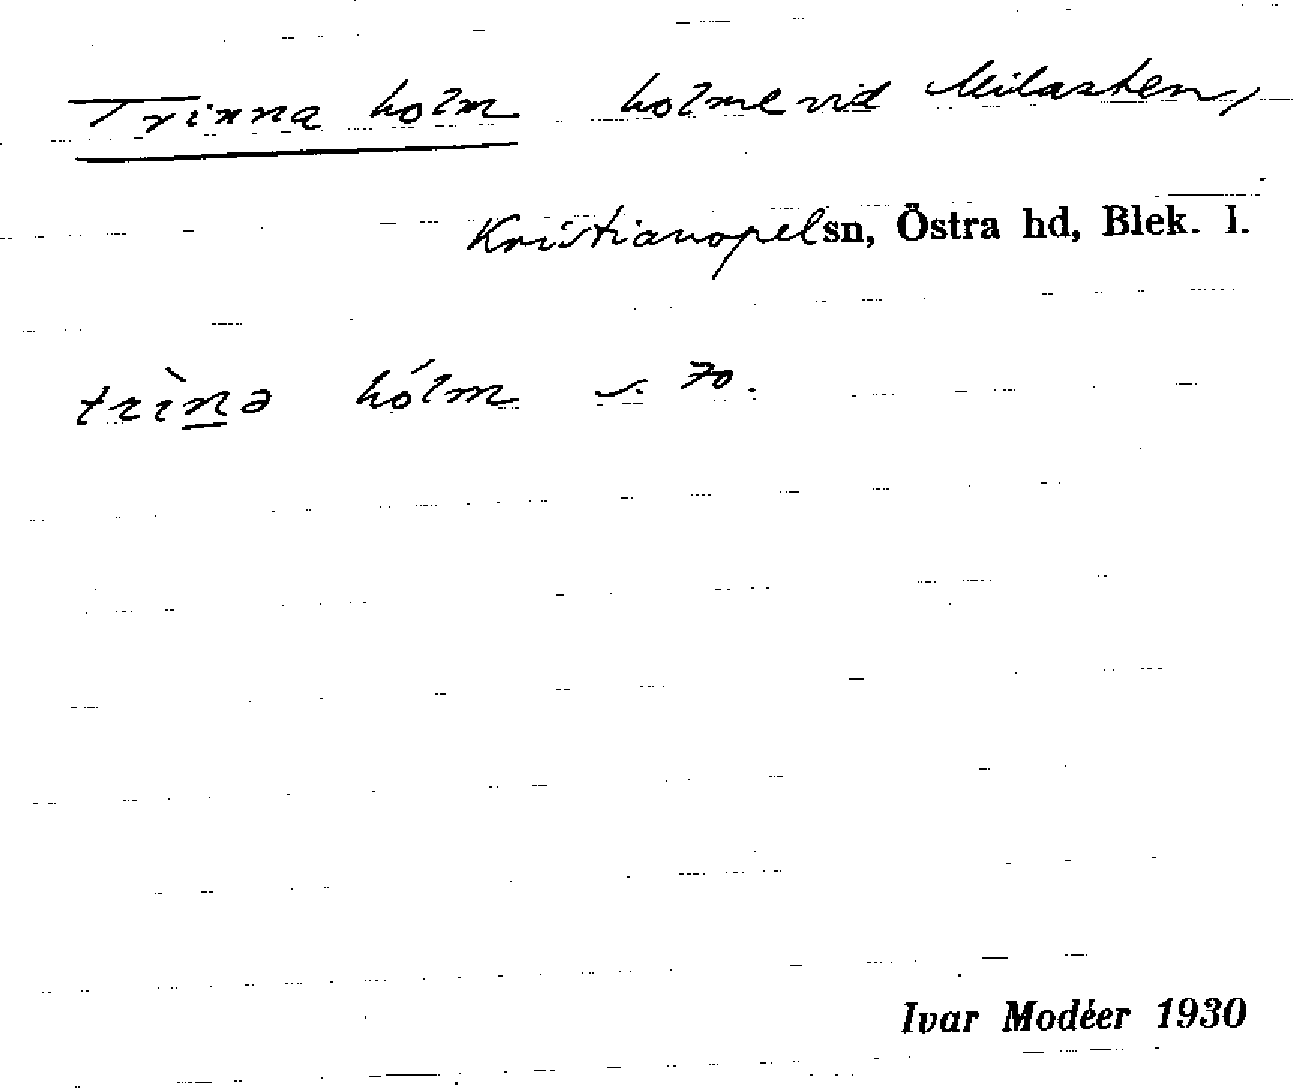 Trinna holm holme vid Milasten,
Kristianopel sn, Östra hd, Blek. l.
trìn̲ə hólm s. 70.
Ivar Modéer 1930